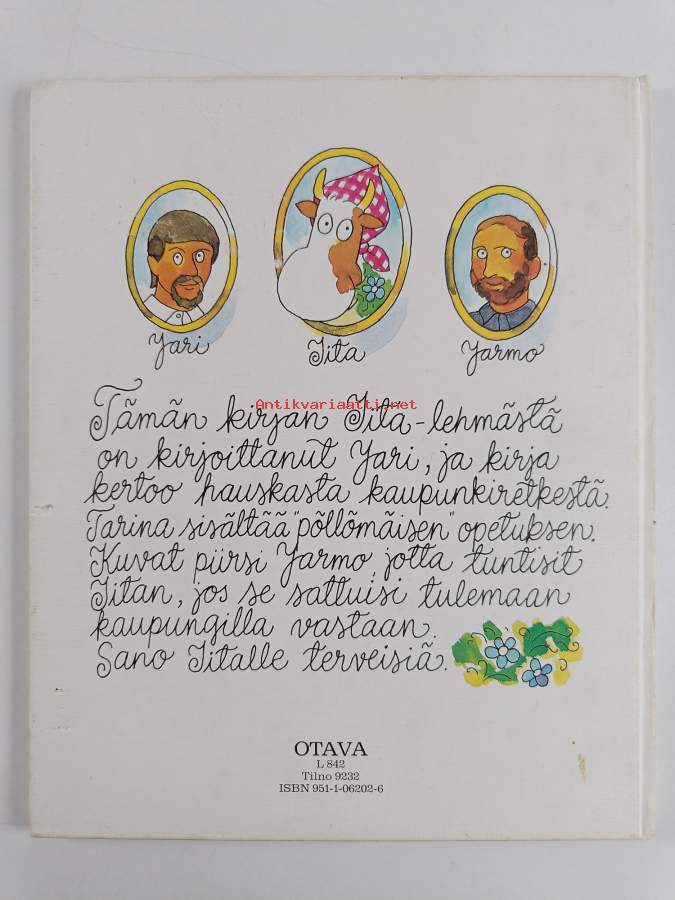 Yari
Iita
Yarmo
Antikvariaatti.net
Tämän kirjan Iita-lehmästä
on kirjoittanut Yari, ja kirja
kertoo hauskasta kaupunkiretkestä.
Tarina sisältää "pöllömäisen" opetuksen.
Kuvat piirsi Yarmo jotta tuntisit
Iitan, jos se sattuisi tulemaan
kaupungilla vastaan.
Sano Iitalle terveisiä.
OTAVA
L 842
Tilno 9232
ISBN 951-1-06202-6